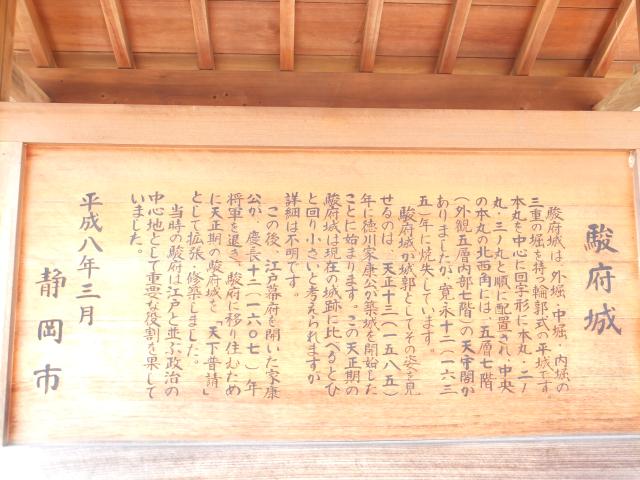 駿府城
駿府城は、外堀・中堀・内堀の
三重の堀を持つ輪郭式の平城です。
本丸を中心に回字形に本丸・二ノ
丸・三ノ丸と順に配置され、中央
の本丸の北西角には、五層七階
(外観五層内部七階)の天守閣が
ありましたが、寛永十二(一六三
五)年に焼失しています。
駿府城が城郭としてその姿を見
せるのは、天正十三(一五八五)
年に徳川家康公が築城を開始した
ことに始まります。この天正期の
駿府城は現在の城跡に比べるとひ
と回り小さいと考えられますが
詳細は不明です。
この後、江戸幕府を開いた家康
公が、慶長十二(一六〇七)年
将軍を退き、駿府に移り住むため
に天正期の駿府城を「天下普請」
として拡張・修築しました。
当時の駿府は江戸と並ぶ政治の
中心地として重要な役割を果して
いました。
平成八年三月
静岡市